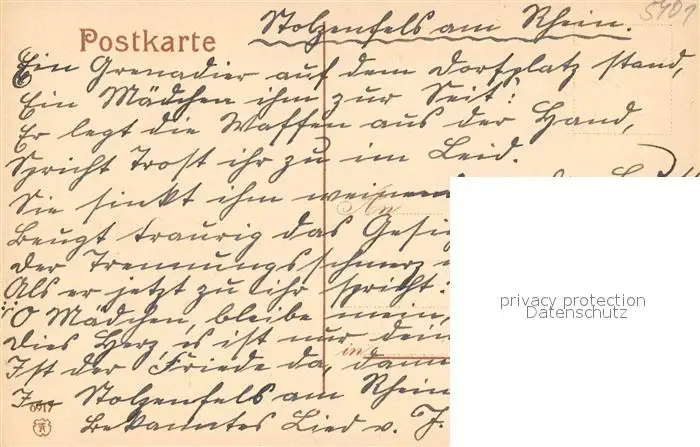 5401
Stolzenfels am Rhein.
Postkarte
Ein Grenadier auf dem Dorfplatz stand,
Ein Mädchen ihm zur Seit:
Er legt die Waffen aus der Hand,
Spricht Trost ihr zu im Leid.
Sie sinkt ihm weinend
An
Beugt traurig das Gesi
Der Trennungsschmerz
Als er jetzt zu ihr spricht:
"O Mädchen, bleibe mein,
Dies Herz, es ist nur dein
Ist der Friede da, dann
in
In Stolzenfels am Rhein
6917
Bekanntes Lied v. J.
privacy protection
Datenschutz